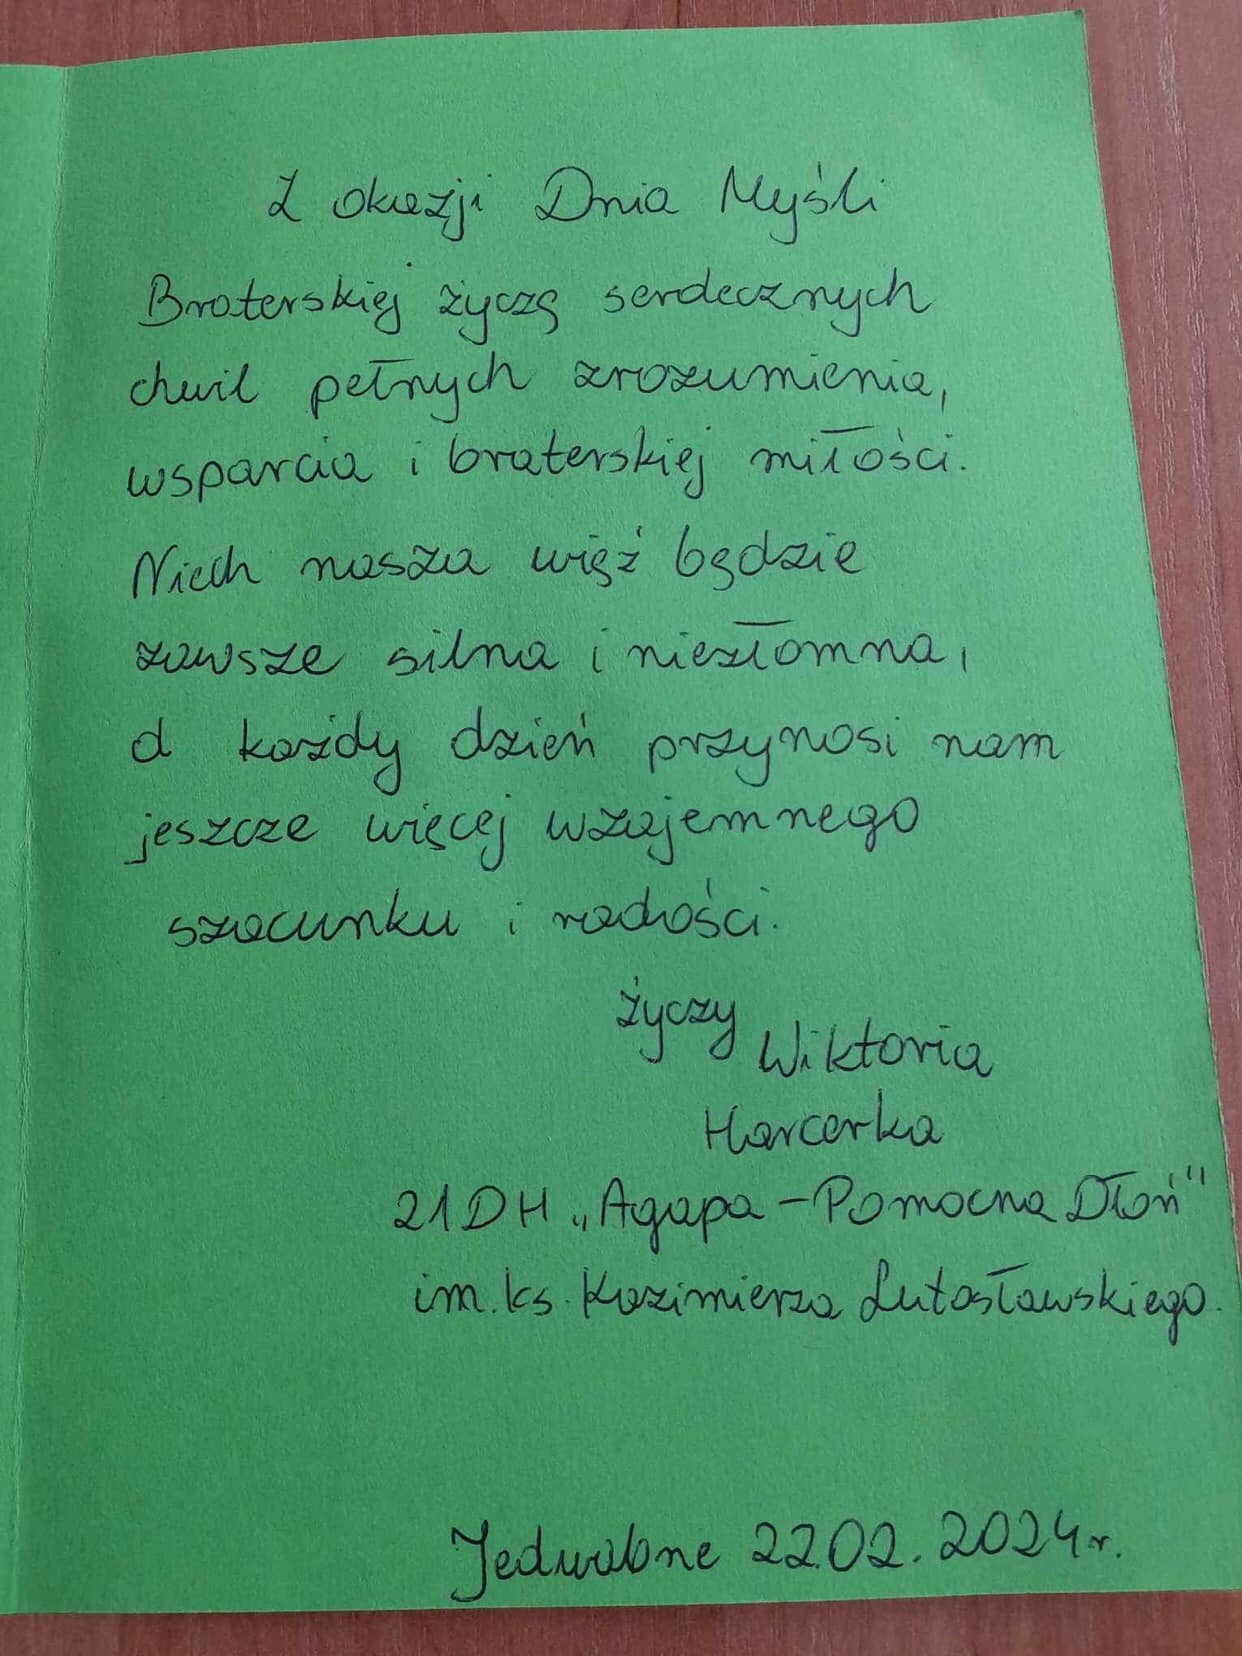 Z okazji Dnia Myśli
Braterskiej życzę serdecznych
chwil pełnych zrozumienia,
wsparcia i braterskiej miłości.
Niech nasza więź będzie
zawsze silna i niezłomna,
a każdy dzień przynosi nam
jeszcze więcej wzajemnego
szacunku i radości.
życzy Wiktoria
Harcerka
21DH „Agapa – Pomocna Dłoń”
im. ks. Kazimierza Lutosławskiego.
Jedwabne 22.02.2024r.